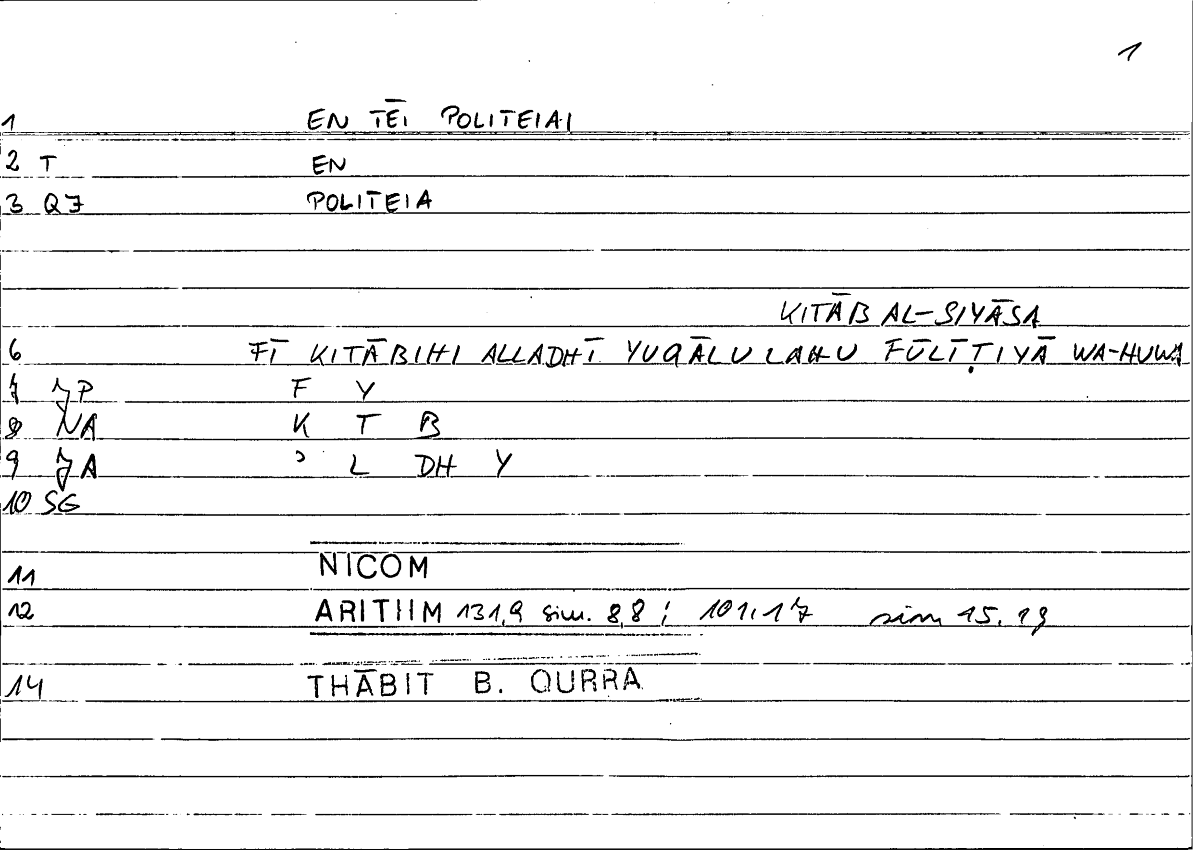 1
1 EN TĒI POLITEIAI
2 T EN
3 QJ POLITEIA
KITĀB AL-SIYĀSA
6 FĪ KITĀBIHI ALLADHĪ YUQĀLU LAHU FŪLĪṬIYĀ WA-HUWA
7 JP F Y
8 NA K T B
9 JA ʾ L DH Y
10 SG
11 NICOM
12 ARITHM 131,9 sim. 8,8; 101,17 sim 15.19
14 THĀBIT B. QURRA